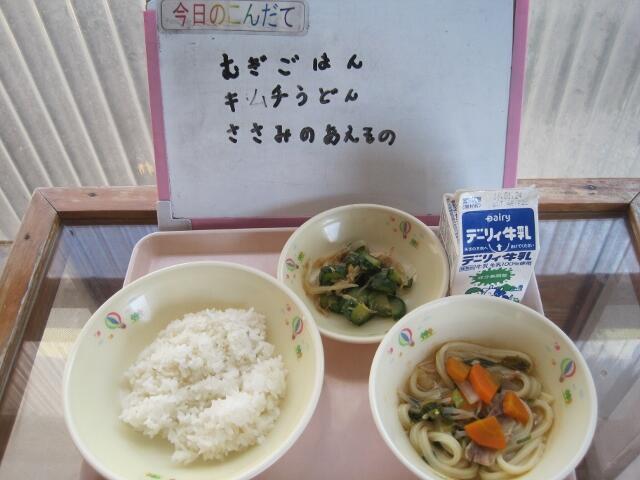 今日のこんだて
むぎごはん
キムチうどん
ささみのあえもの
Dairy
デーリィ牛乳
デーリィ牛乳